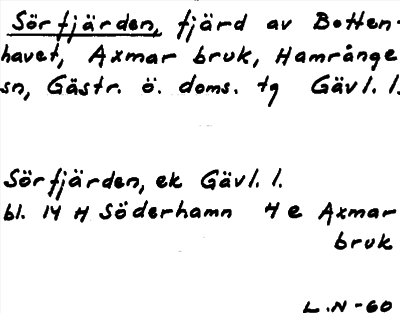 Sörfjärden, fjärd av Botten-
havet, Axmar bruk, Hamrånge
sn, Gästr. ö. doms. tg Gävl. l.
Sörfjärden, ek Gävl. l.
bl. 14 H Söderhamn 4 e Axmar
bruk
L.N-60